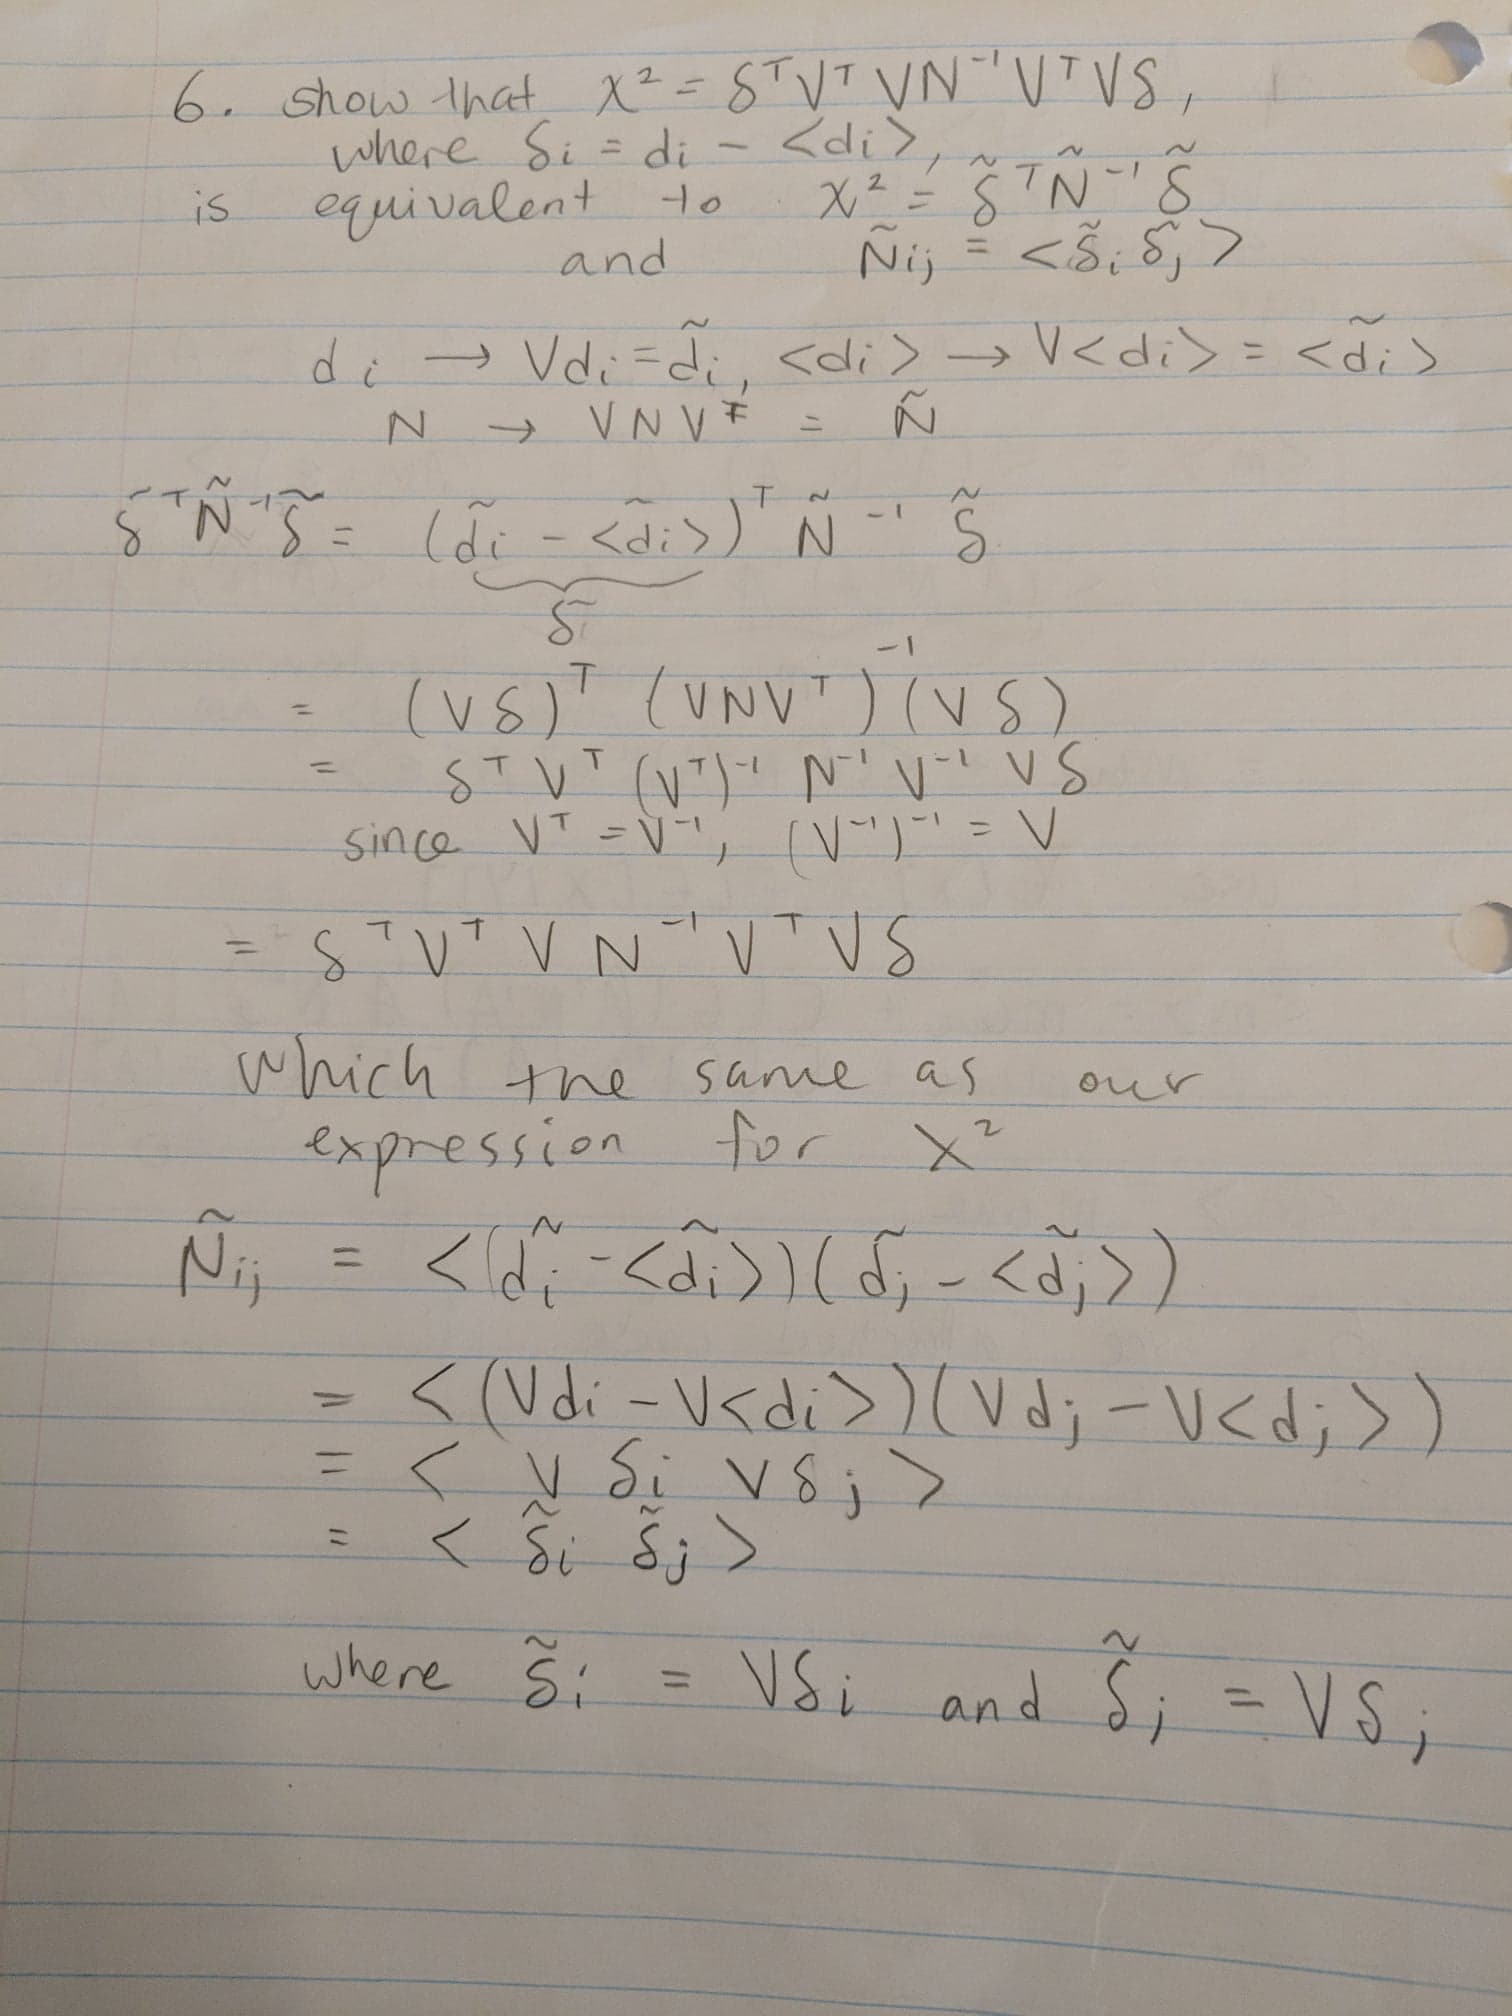 6. show that χ² = δᵀVᵀVN⁻¹VᵀVδ,
where δi = di - <di>,
is equivalent to χ² = δ̃ᵀÑ⁻¹δ̃
and Ñij = <δ̃i δ̃j>
di → Vdi = d̃i, <di> → V<di> = <d̃i>
N → VNVᵀ = Ñ
δ̃ᵀÑ⁻¹δ̃ = (d̃i - <d̃i>)ᵀ Ñ⁻¹ δ̃
δ̃
= (Vδ)ᵀ (VNVᵀ)⁻¹ (Vδ)
= δᵀVᵀ (Vᵀ)⁻¹ N⁻¹ V⁻¹ Vδ
since Vᵀ = V⁻¹, (V⁻¹)⁻¹ = V
= δᵀVᵀVN⁻¹VᵀVδ
which the same as our
expression for χ²
Ñij = <(d̃i - <d̃i>)(d̃j - <d̃j>)
= <(Vdi - V<di>)(Vdj - V<dj>)
= < Vδi Vδj >
= < δ̃i δ̃j >
where δ̃i = Vδi and δ̃j = Vδj